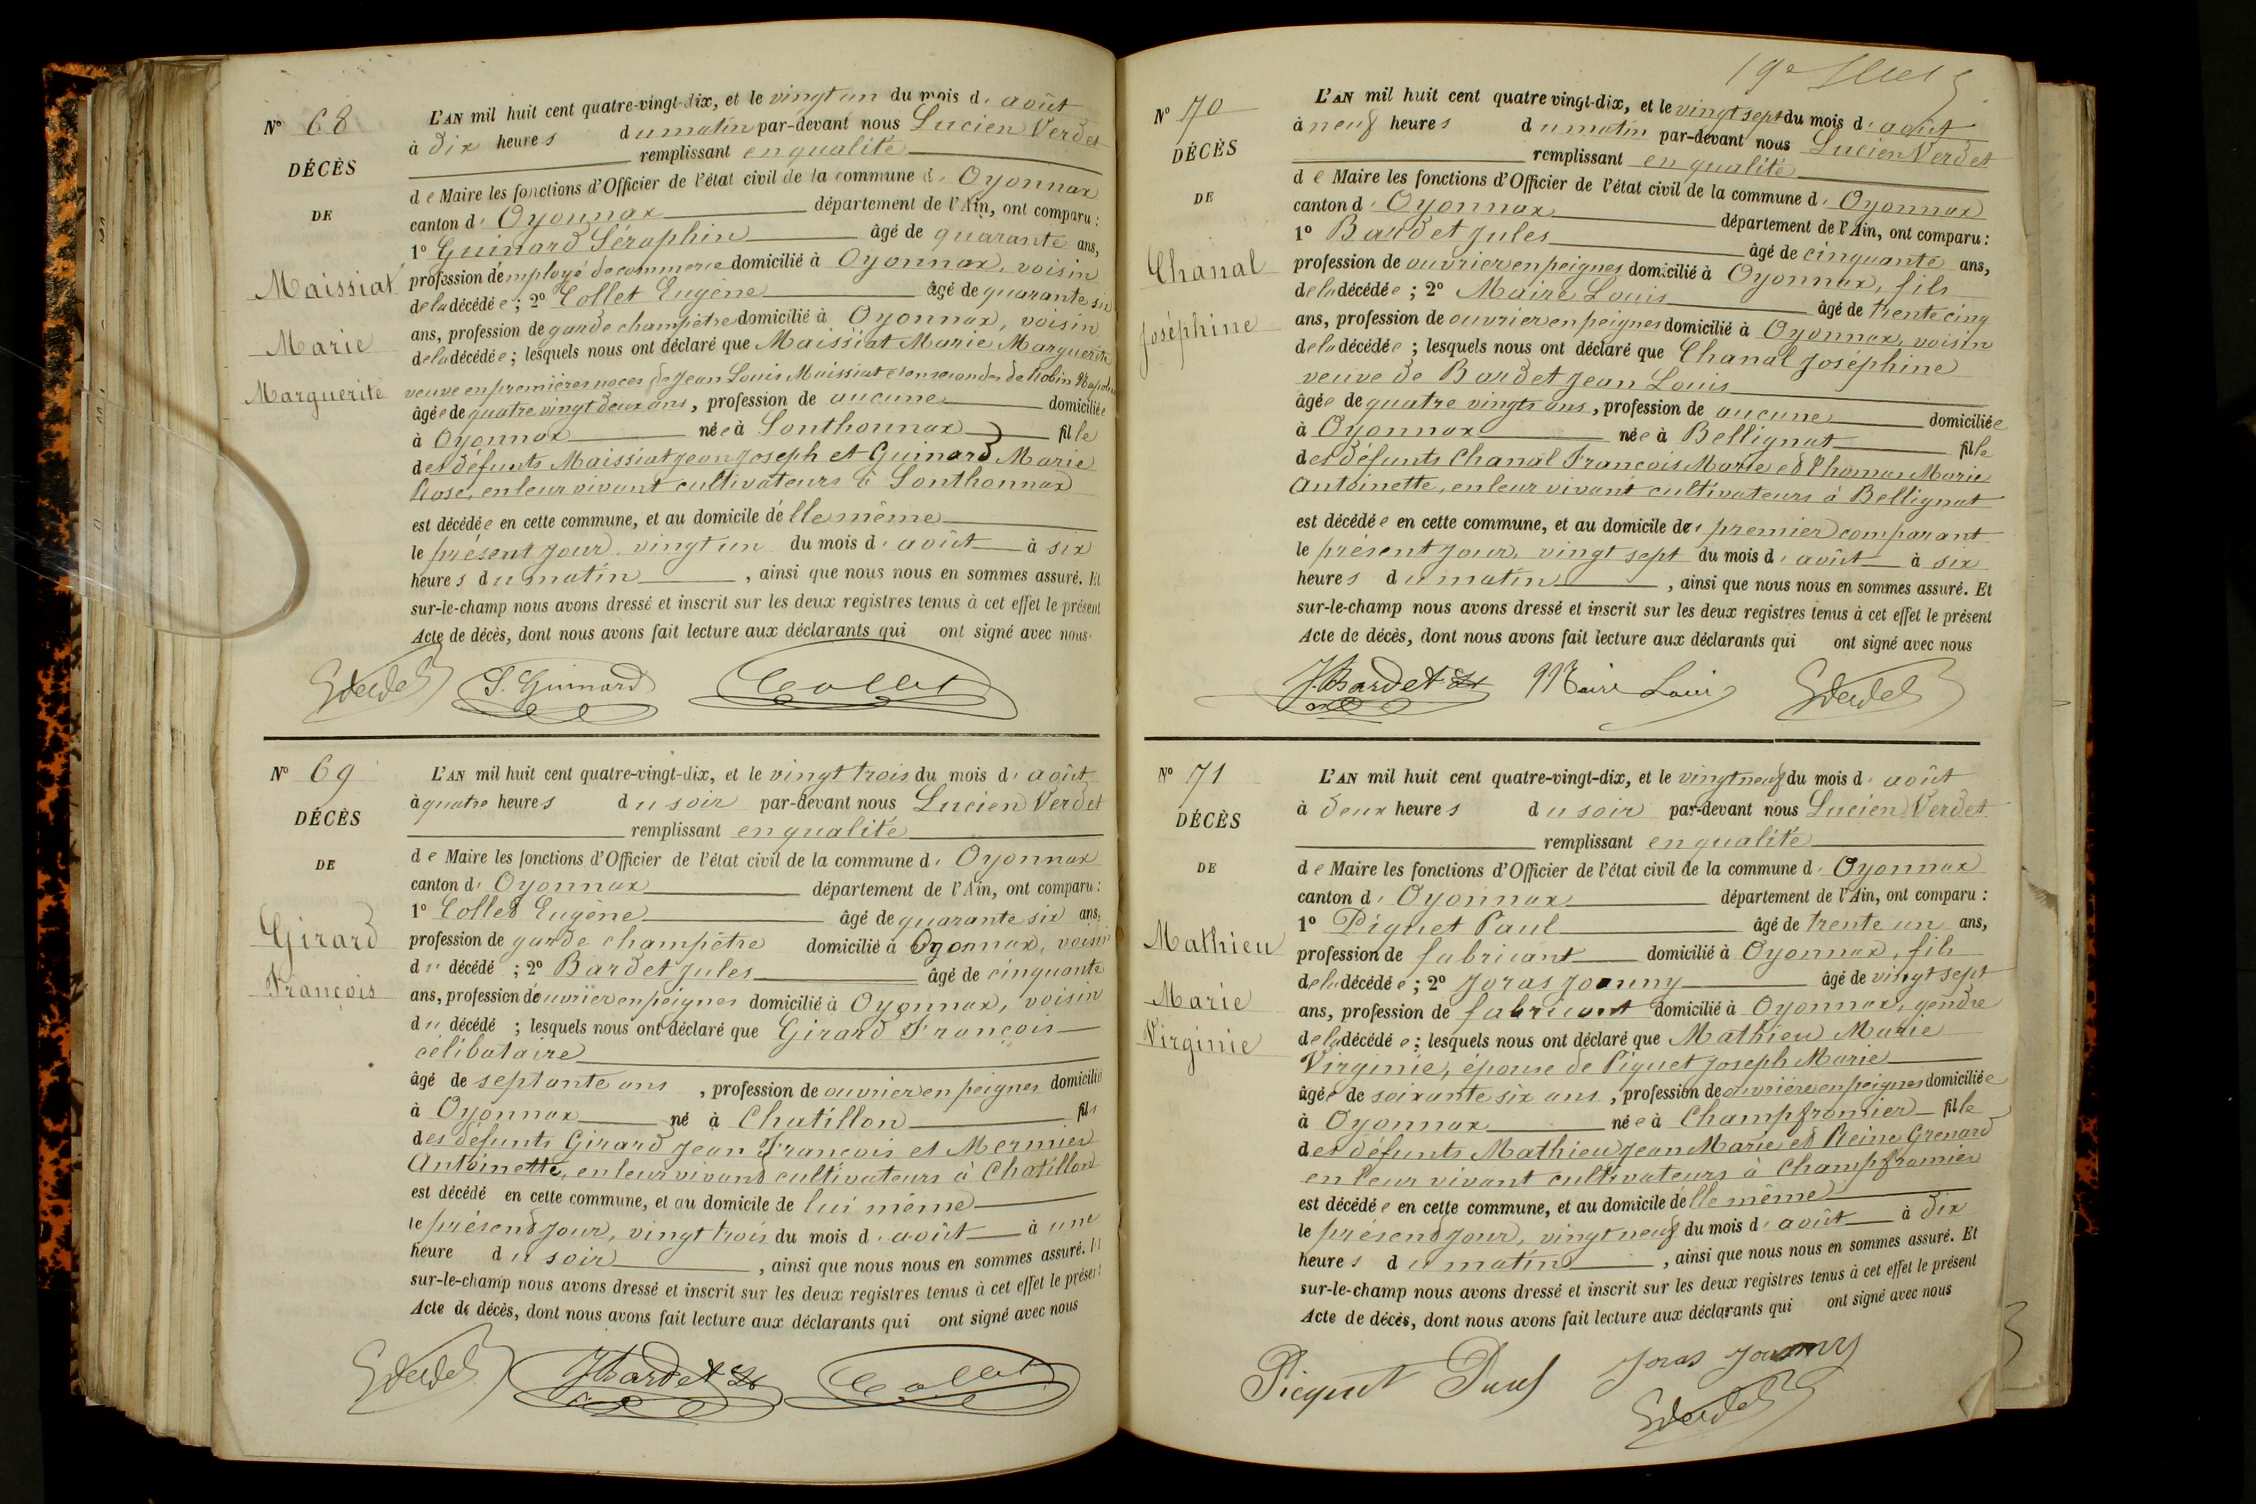 N° 68
DÉCÈS
DE
Maissiat
Marie
Marguerite
L'AN mil huit cent quatre-vingt-dix, et le vingt un du mois d'août
à dix heures du matin par-devant nous Lucien Verdet
remplissant en qualité
de Maire les fonctions d'Officier de l'état civil de la commune d'Oyonnax
canton d'Oyonnax département de l'Ain, ont comparu :
1° Guinard Séraphin âgé de quarante ans,
profession d'employé de commerce domicilié à Oyonnax, voisin
de la décédée ; 2° Collet Eugène âgé de quarante six
ans, profession de garde champêtre domicilié à Oyonnax, voisin
de la décédée ; lesquels nous ont déclaré que Maissiat Marie Marguerite
veuve en premières noces de Jean Louis Maissiat et en secondes de Robin
âgée de quatre vingt deux ans, profession de aucune domiciliée
à Oyonnax née à Sonthonnax fille
des défunts Maissiat Jean Joseph et Guinard Marie
Rose, en leur vivant cultivateurs à Sonthonnax
est décédée en cette commune, et au domicile d'elle même
le présent jour vingt un du mois d'août à six
heures du matin, ainsi que nous nous en sommes assuré. Et
sur-le-champ nous avons dressé et inscrit sur les deux registres tenus à cet effet le présent
Acte de décès, dont nous avons fait lecture aux déclarants qui ont signé avec nous
LVerdet S. Guinard Collet
N° 69
DÉCÈS
DE
Girard
François
L'AN mil huit cent quatre-vingt-dix, et le vingt trois du mois d'août
à quatre heures du soir par-devant nous Lucien Verdet
remplissant en qualité
de Maire les fonctions d'Officier de l'état civil de la commune d'Oyonnax
canton d'Oyonnax département de l'Ain, ont comparu :
1° Collet Eugène âgé de quarante six ans,
profession de garde champêtre domicilié à Oyonnax, voisin
du décédé ; 2° Bardet Jules âgé de cinquante
ans, profession d'ouvrier en peignes domicilié à Oyonnax, voisin
du décédé ; lesquels nous ont déclaré que Girard François
célibataire
âgé de septante ans, profession de ouvrier en peignes domicilié
à Oyonnax né à Chatillon fils
des défunts Girard Jean François et Mermier
Antoinette, en leur vivant cultivateurs à Chatillon
est décédé en cette commune, et au domicile de lui même
le présent jour, vingt trois du mois d'août à une
heure du soir, ainsi que nous nous en sommes assuré. Et
sur-le-champ nous avons dressé et inscrit sur les deux registres tenus à cet effet le présent
Acte de décès, dont nous avons fait lecture aux déclarants qui ont signé avec nous
LVerdet JBardet Collet
N° 70
DÉCÈS
DE
Chanal
Joséphine
L'AN mil huit cent quatre vingt-dix, et le vingt sept du mois d'août
à neuf heures du matin par-devant nous Lucien Verdet
remplissant en qualité
de Maire les fonctions d'Officier de l'état civil de la commune d'Oyonnax
canton d'Oyonnax département de l'Ain, ont comparu :
1° Bardet Jules âgé de cinquante ans,
profession de ouvrier en peignes domicilié à Oyonnax, fils
de la décédée ; 2° Maire Louis âgé de trente cinq
ans, profession de ouvrier en peignes domicilié à Oyonnax, voisin
de la décédée ; lesquels nous ont déclaré que Chanal Joséphine
veuve de Bardet Jean Louis
âgée de quatre vingts ans, profession de aucune domiciliée
à Oyonnax née à Bellignat fille
des défunts Chanal François Marie et Thomas Marie
Antoinette, en leur vivant cultivateurs à Bellignat
est décédée en cette commune, et au domicile du premier comparant
le présent jour, vingt sept du mois d'août à six
heures du matin, ainsi que nous nous en sommes assuré. Et
sur-le-champ nous avons dressé et inscrit sur les deux registres tenus à cet effet le présent
Acte de décès, dont nous avons fait lecture aux déclarants qui ont signé avec nous
JBardet Maire Louis LVerdet
N° 71
DÉCÈS
DE
Mathieu
Marie
Virginie
L'AN mil huit cent quatre-vingt-dix, et le vingt neuf du mois d'août
à deux heures du soir par-devant nous Lucien Verdet
remplissant en qualité
de Maire les fonctions d'Officier de l'état civil de la commune d'Oyonnax
canton d'Oyonnax département de l'Ain, ont comparu :
1° Piquet Paul âgé de trente un ans,
profession de fabricant domicilié à Oyonnax, fils
de la décédée ; 2° Joras Joanny âgé de vingt sept
ans, profession de fabricant domicilié à Oyonnax, gendre
de la décédée ; lesquels nous ont déclaré que Mathieu Marie
Virginie, épouse de Piquet Joseph Marie
âgée de soixante six ans, profession de ouvrière en peignes domiciliée
à Oyonnax née à Champfromier fille
des défunts Mathieu Jean Marie et Reine Grenard
en leur vivant cultivateurs à Champfromier
est décédée en cette commune, et au domicile d'elle même
le présent jour, vingt neuf du mois d'août à dix
heures du matin, ainsi que nous nous en sommes assuré. Et
sur-le-champ nous avons dressé et inscrit sur les deux registres tenus à cet effet le présent
Acte de décès, dont nous avons fait lecture aux déclarants qui ont signé avec nous
Picquet Paul Joras Joanny
LVerdet